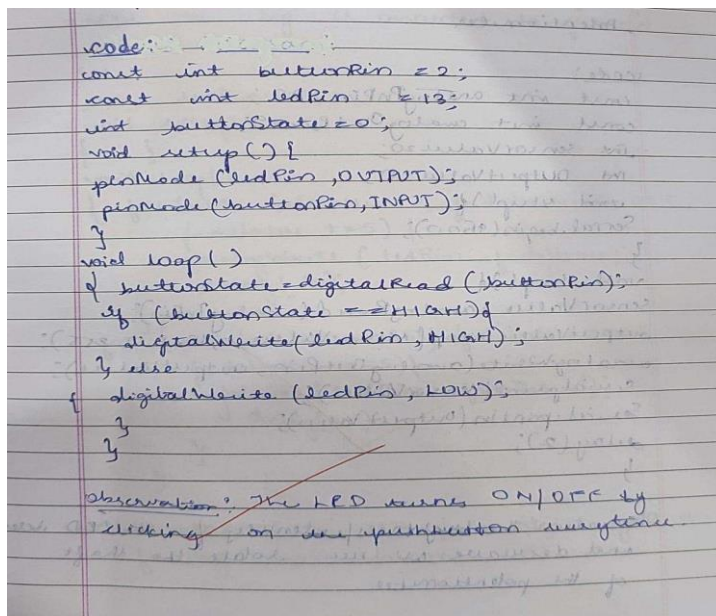 code:
const int buttonPin = 2;
const int ledPin = 13;
int buttonState = 0;
void setup() {
pinMode (ledPin, OUTPUT);
pinMode (buttonPin, INPUT);
}
void loop()
{ buttonState = digitalRead (buttonPin);
if (buttonState == HIGH) {
digitalWrite( ledPin, HIGH) ;
} else
{ digitalWrite (ledPin, LOW);
}
}
Observation: The LED turns ON/OFF by
clicking on the pushbutton everytime.